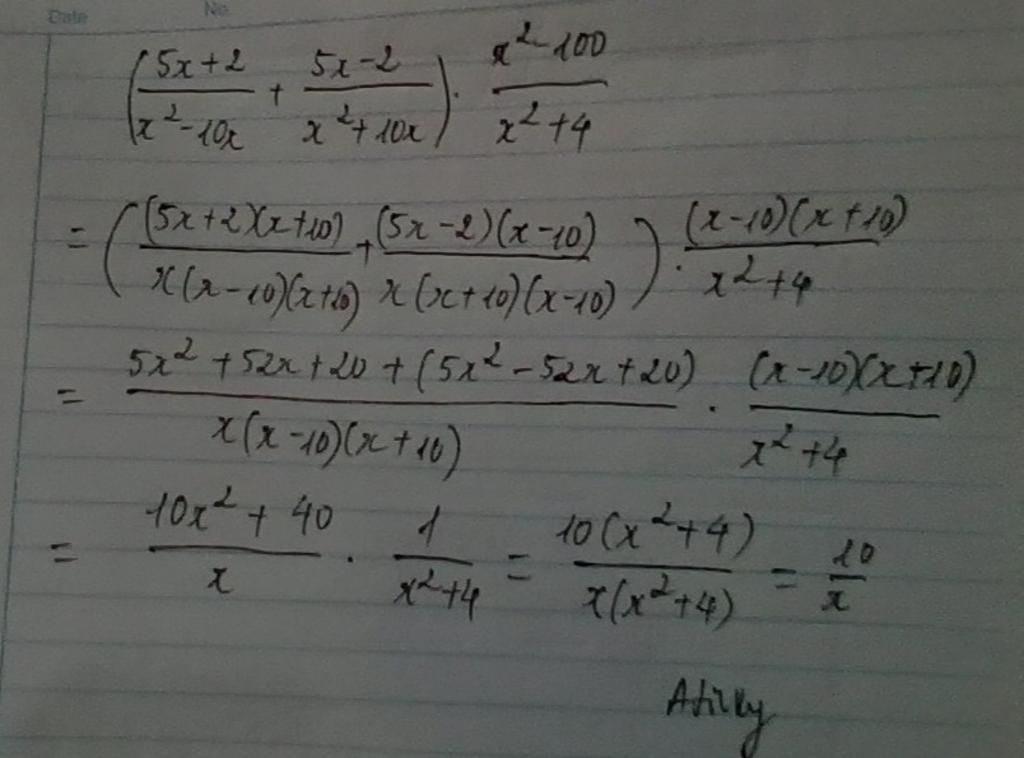 Date No.
(5x+2/x²-10x + 5x-2/x²+10x) . x²-100/x²+4
= ((5x+2)(x+10)/x(x-10)(x+10) + (5x-2)(x-10)/x(x+10)(x-10)) . (x-10)(x+10)/x²+4
= 5x²+52x+20+(5x²-52x+20)/x(x-10)(x+10) . (x-10)(x+10)/x²+4
= 10x²+40/x . 1/x²+4 = 10(x²+4)/x(x²+4) = 10/x